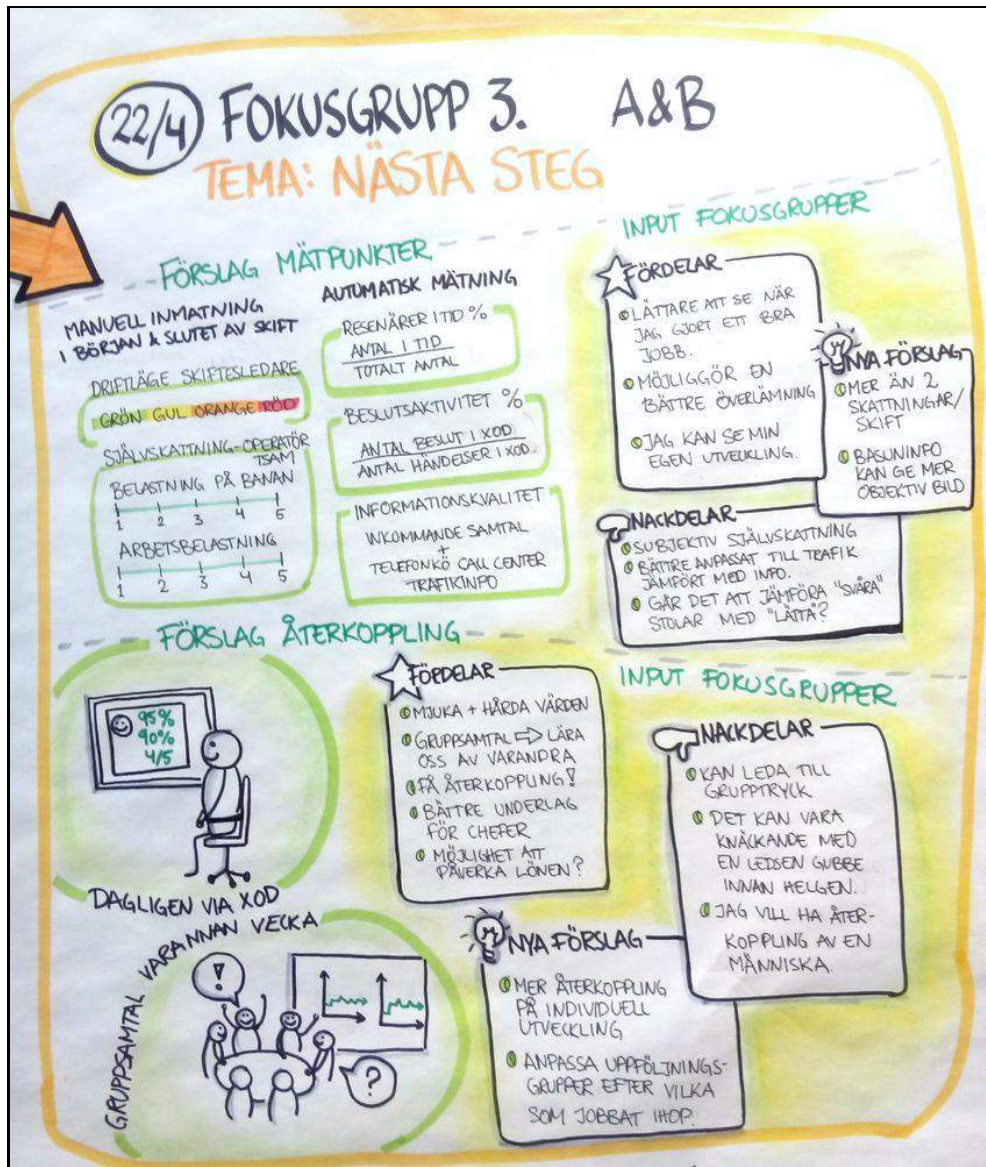 22/4 FOKUSGRUPP 3. A&B
TEMA: NÄSTA STEG
FÖRSLAG MÄTPUNKTER
MANUELL INMATNING
I BÖRJAN & SLUTET AV SKIFT
DRIFTLÄGE SKIFTESLEDARE
GRÖN GUL ORANGE RÖD
SJÄLVSKATTNING-OPERATÖR
TSAM
BELASTNING PÅ BANAN
1 2 3 4 5
ARBETSBELASTNING
1 2 3 4 5
AUTOMATISK MÄTNING
RESENÄRER I TID %
ANTAL I TID
TOTALT ANTAL
BESLUTSAKTIVITET %
ANTAL BESLUT I XOD
ANTAL HÄNDELSER I XOD
INFORMATIONSKVALITET
INKOMMANDE SAMTAL
+
TELEFONKÖ CALL CENTER
TRAFIKINFO
INPUT FOKUSGRUPPER
FÖRDELAR
LÄTTARE ATT SE NÄR
JAG GJORT ETT BRA
JOBB.
MÖJLIGGÖR EN
BÄTTRE ÖVERLÄMNING
JAG KAN SE MIN
EGEN UTVECKLING.
NYA FÖRSLAG
MER ÄN 2
SKATTNINGAR/
SKIFT
BASUNINFO
KAN GE MER
OBJEKTIV BILD
NACKDELAR
SUBJEKTIV SJÄLVSKATTNING
BÄTTRE ANPASSAT TILL TRAFIK
JÄMFÖRT MED INFO.
GÅR DET ATT JÄMFÖRA "SVÅRA"
STOLAR MED "LÄTTA"?
FÖRSLAG ÅTERKOPPLING
95%
90%
4/5
DAGLIGEN VIA XOD
GRUPPSAMTAL VARANNAN VECKA
!
?
FÖRDELAR
MJUKA + HÅRDA VÄRDEN
GRUPPSAMTAL ⇨ LÄRA
OSS AV VARANDRA
FÅ ÅTERKOPPLING!
BÄTTRE UNDERLAG
FÖR CHEFER
MÖJLIGHET ATT
PÅVERKA LÖNEN?
INPUT FOKUSGRUPPER
NACKDELAR
KAN LEDA TILL
GRUPPTRYCK
DET KAN VARA
KNÄCKANDE MED
EN LEDSEN GUBBE
INNAN HELGEN.
JAG VILL HA ÅTER-
KOPPLING AV EN
MÄNNISKA.
NYA FÖRSLAG
MER ÅTERKOPPLING
PÅ INDIVIDUELL
UTVECKLING
ANPASSA UPPFÖLJNINGS-
GRUPPER EFTER VILKA
SOM JOBBAT IHOP.